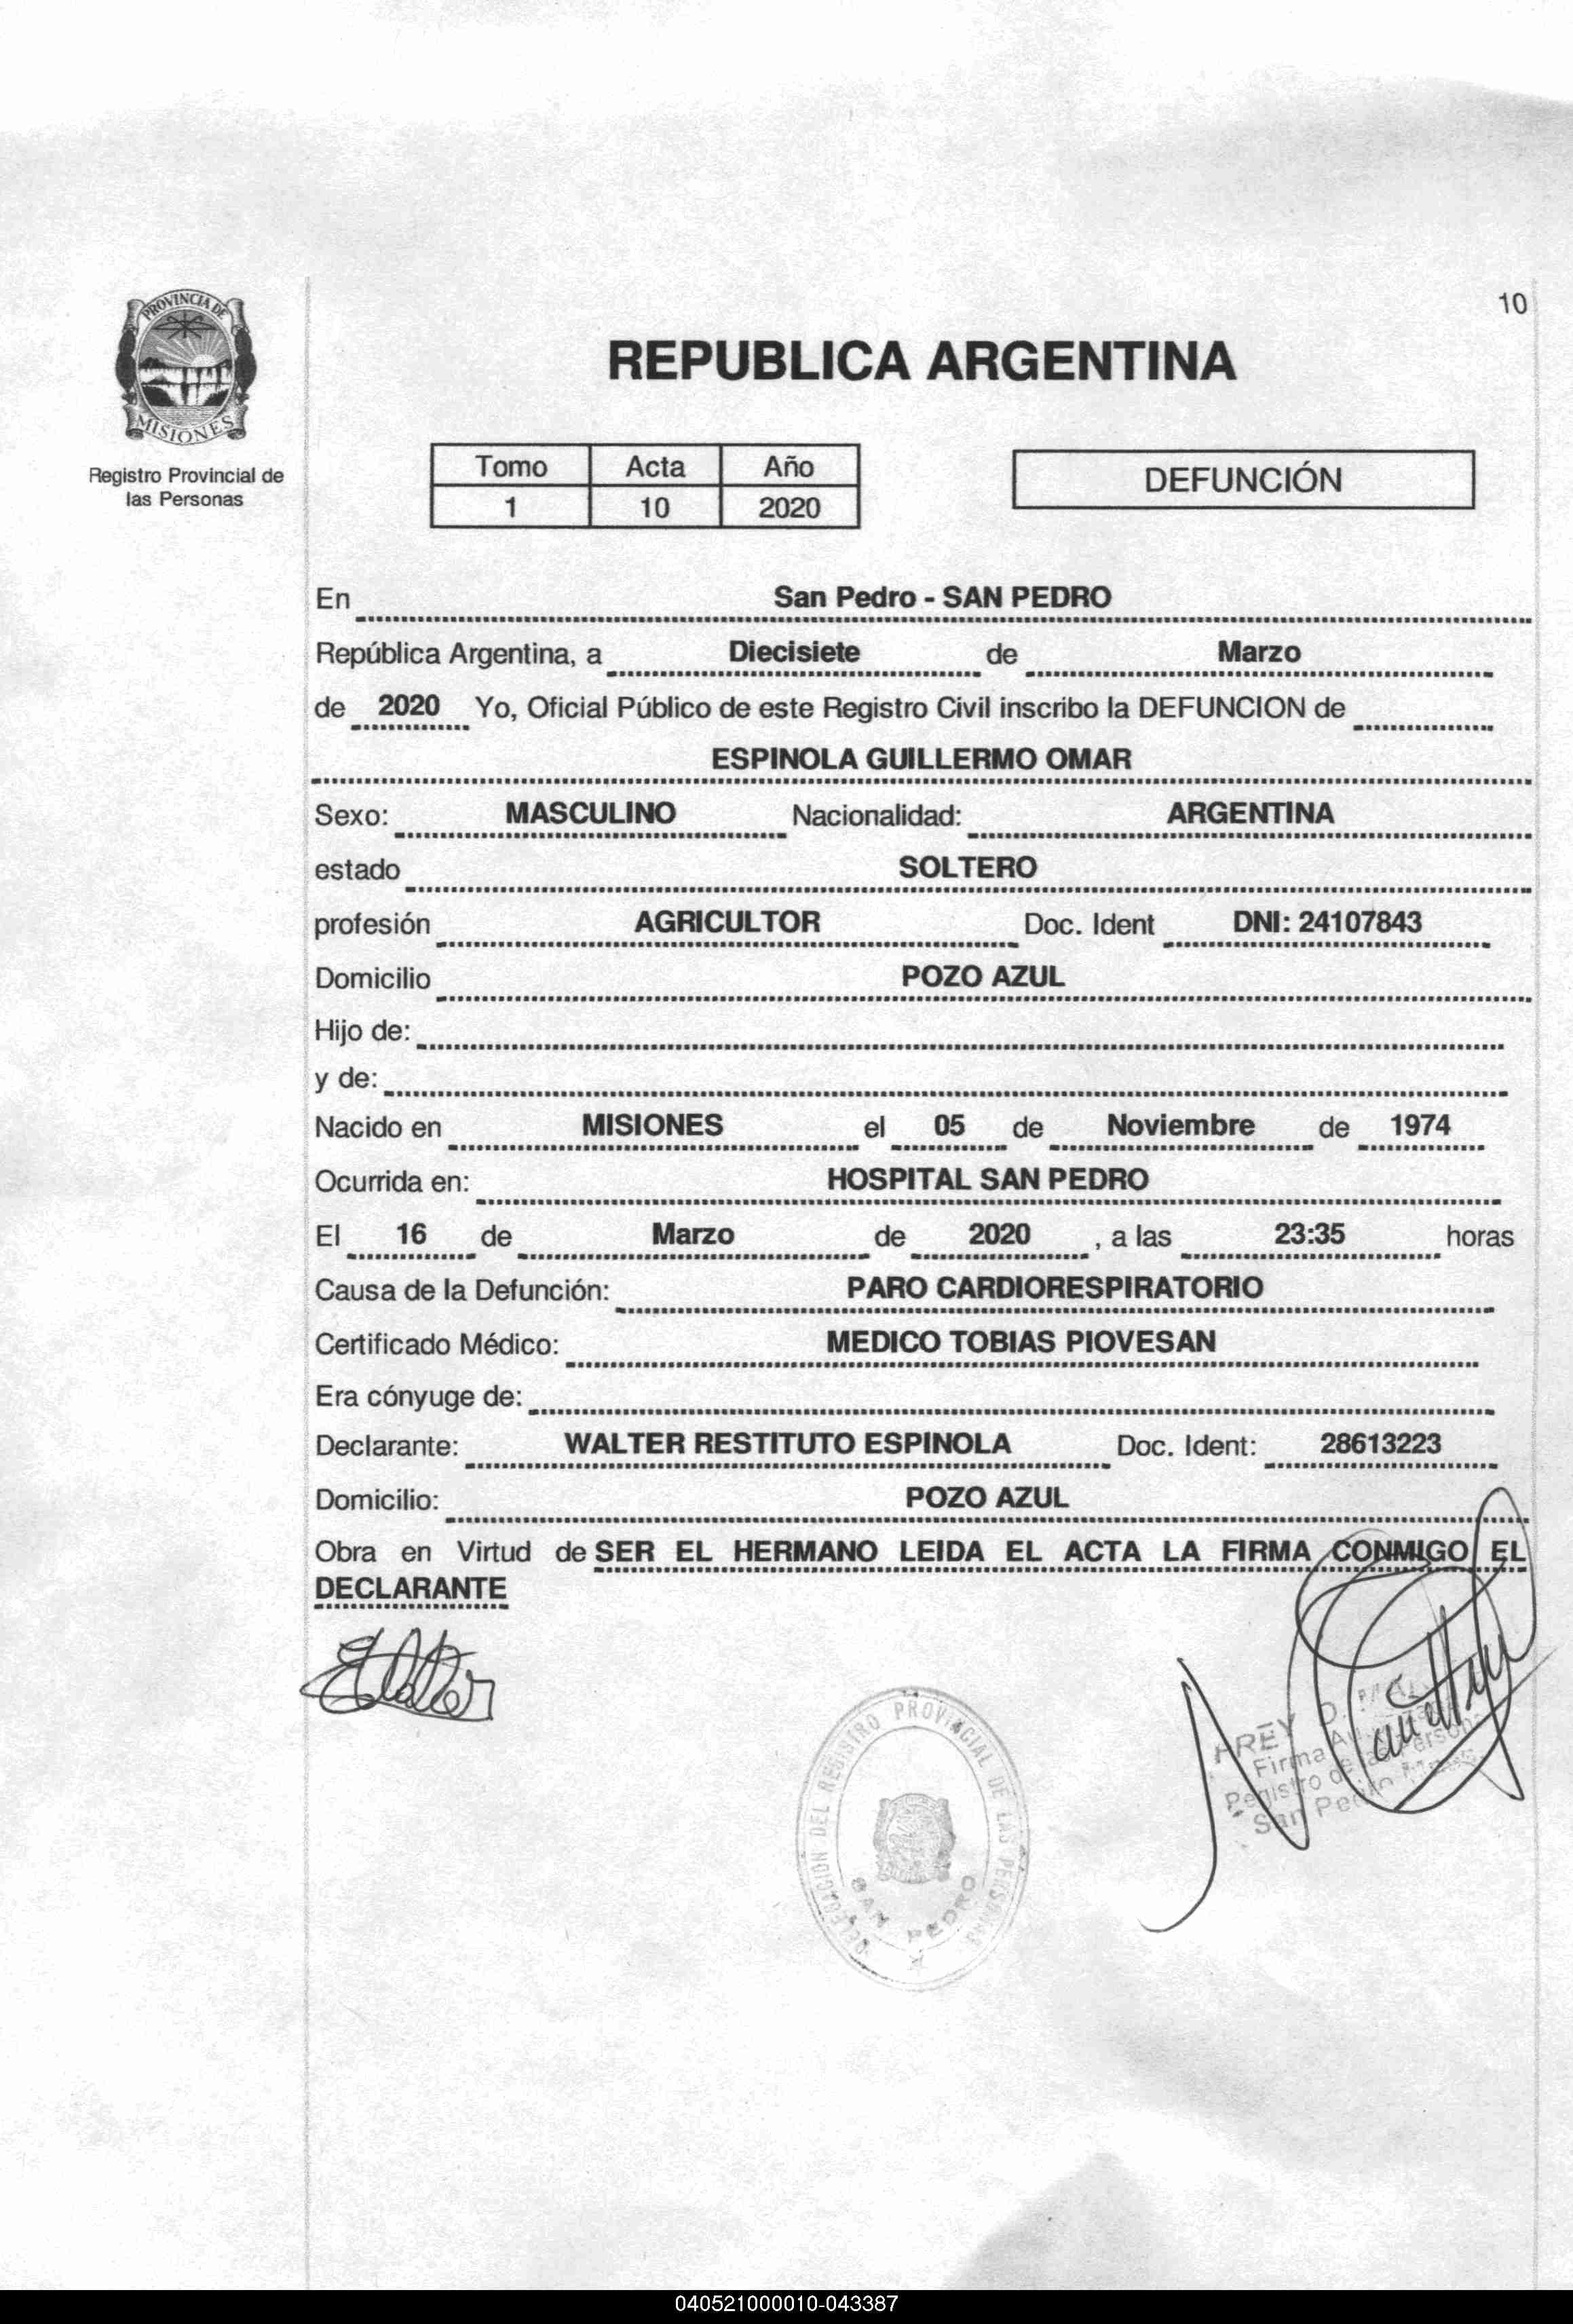 10
PROVINCIA DE
MISIONES
Registro Provincial de
las Personas
REPUBLICA ARGENTINA
Tomo Acta Año
1 10 2020
DEFUNCIÓN
En San Pedro - SAN PEDRO
República Argentina, a Diecisiete de Marzo
de 2020 Yo, Oficial Público de este Registro Civil inscribo la DEFUNCION de
ESPINOLA GUILLERMO OMAR
Sexo: MASCULINO Nacionalidad: ARGENTINA
estado SOLTERO
profesión AGRICULTOR Doc. Ident DNI: 24107843
Domicilio POZO AZUL
Hijo de:
y de:
Nacido en MISIONES el 05 de Noviembre de 1974
Ocurrida en: HOSPITAL SAN PEDRO
El 16 de Marzo de 2020 , a las 23:35 horas
Causa de la Defunción: PARO CARDIORESPIRATORIO
Certificado Médico: MEDICO TOBIAS PIOVESAN
Era cónyuge de:
Declarante: WALTER RESTITUTO ESPINOLA Doc. Ident: 28613223
Domicilio: POZO AZUL
Obra en Virtud de SER EL HERMANO LEIDA EL ACTA LA FIRMA CONMIGO EL
DECLARANTE
DELEGACION DEL REGISTRO PROVINCIAL DE LAS PERSONAS
SAN PEDRO
Firma
Registro de las
San Pedro
040521000010-043387